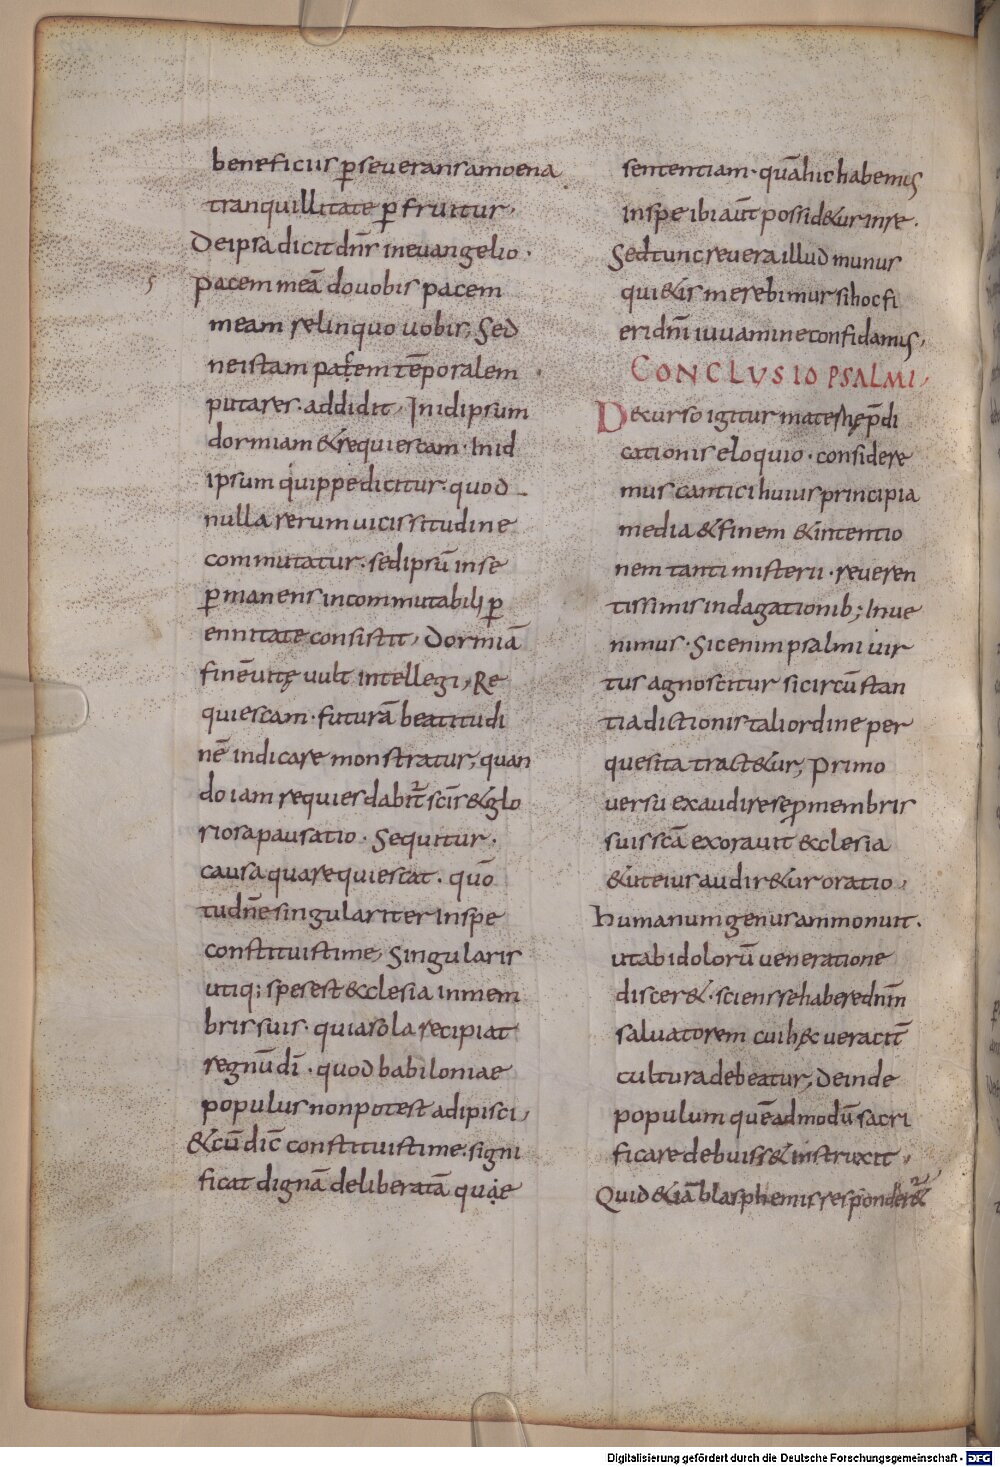 beneficus p̄severans amoena
tranquillitate p̄fruitur,
De ipsa dicit dn̄s in evangelio ·
s
pacem meā do vobis pacem
meam relinquo vobis; Sed
ne istam pacem tēporalem
putares · addidit, In id ipsum
dormiam & requiescam · In id
ipsum quippe dicitur · quod
nulla rerum vicissitudine
commutatur · sed ipsū in se
p̄manens incommutabili p̄
ennitate consistit, Dormiā
finē vitę vult intellegi, Re
quiescam · futurā beatitudi
nē indicare monstratur, quan
do iam requies dabit̄ sc̄is & glo
riosa pausatio · Sequitur ·
causa qua requiescat · quō
tu dn̄e singulariter in spe
constituisti me, Singularis
utiq; spes est ecclesia in mem
bris suis · quia sola recipiat
regnū dī · quod babiloniae
populus non potest adipisci,
& cū dic̄ constituisti me · signi
ficat dignā deliberatā quae
sententiam · quā hic habemus
in spe ibi aūt possid&ur in re ·
Sed tunc revera illud munus
qui &is merebimur si hoc fi
eri dn̄i iuvamine confidamus,
CONCLUSIO PSALMI,
Decurso igitur mat&shę p̄di
cationis eloquio · considere
mus cantici huius principia
media & finem & intentio
nem tanti misterii · reveren
tissimis indagationib; Inve
nimus · Sic enim psalmi vir
tus agnoscitur si circūstan
tia dictionis tali ordine per
quesita tract&ur, Primo
versu exaudiri se p̄ membris
suis sc̄a exoravit ecclesia
& ut eius audir&ur oratio,
humanum genus ammonuit ·
ut ab idolorū veneratione
discer& · sciens se habere dn̄m
salvatorem cui hęc veracit̄
cultura debeatur, Deinde
populum quēadmodū sacri
ficare debuiss& instruxit,
Quid & iā blasphemis responder&
Digitalisierung gefördert durch die Deutsche Forschungsgemeinschaft - DFG